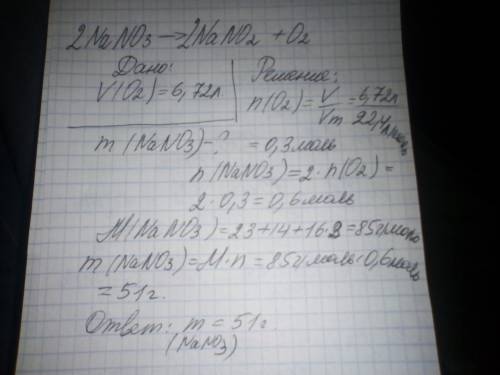 2NaNO3 → 2NaNO2 + O2
Дано:
V(O2) = 6,72л
m(NaNO3) - ?
Решение:
n(O2) = V/Vm = 6,72л/22,4л/моль
= 0,3моль
n(NaNO3) = 2·n(O2) =
2·0,3 = 0,6моль
M(NaNO3) = 23+14+16·3 = 85г/моль
m(NaNO3) = M·n = 85г/моль·0,6моль
= 51г.
Ответ: m(NaNO3) = 51г